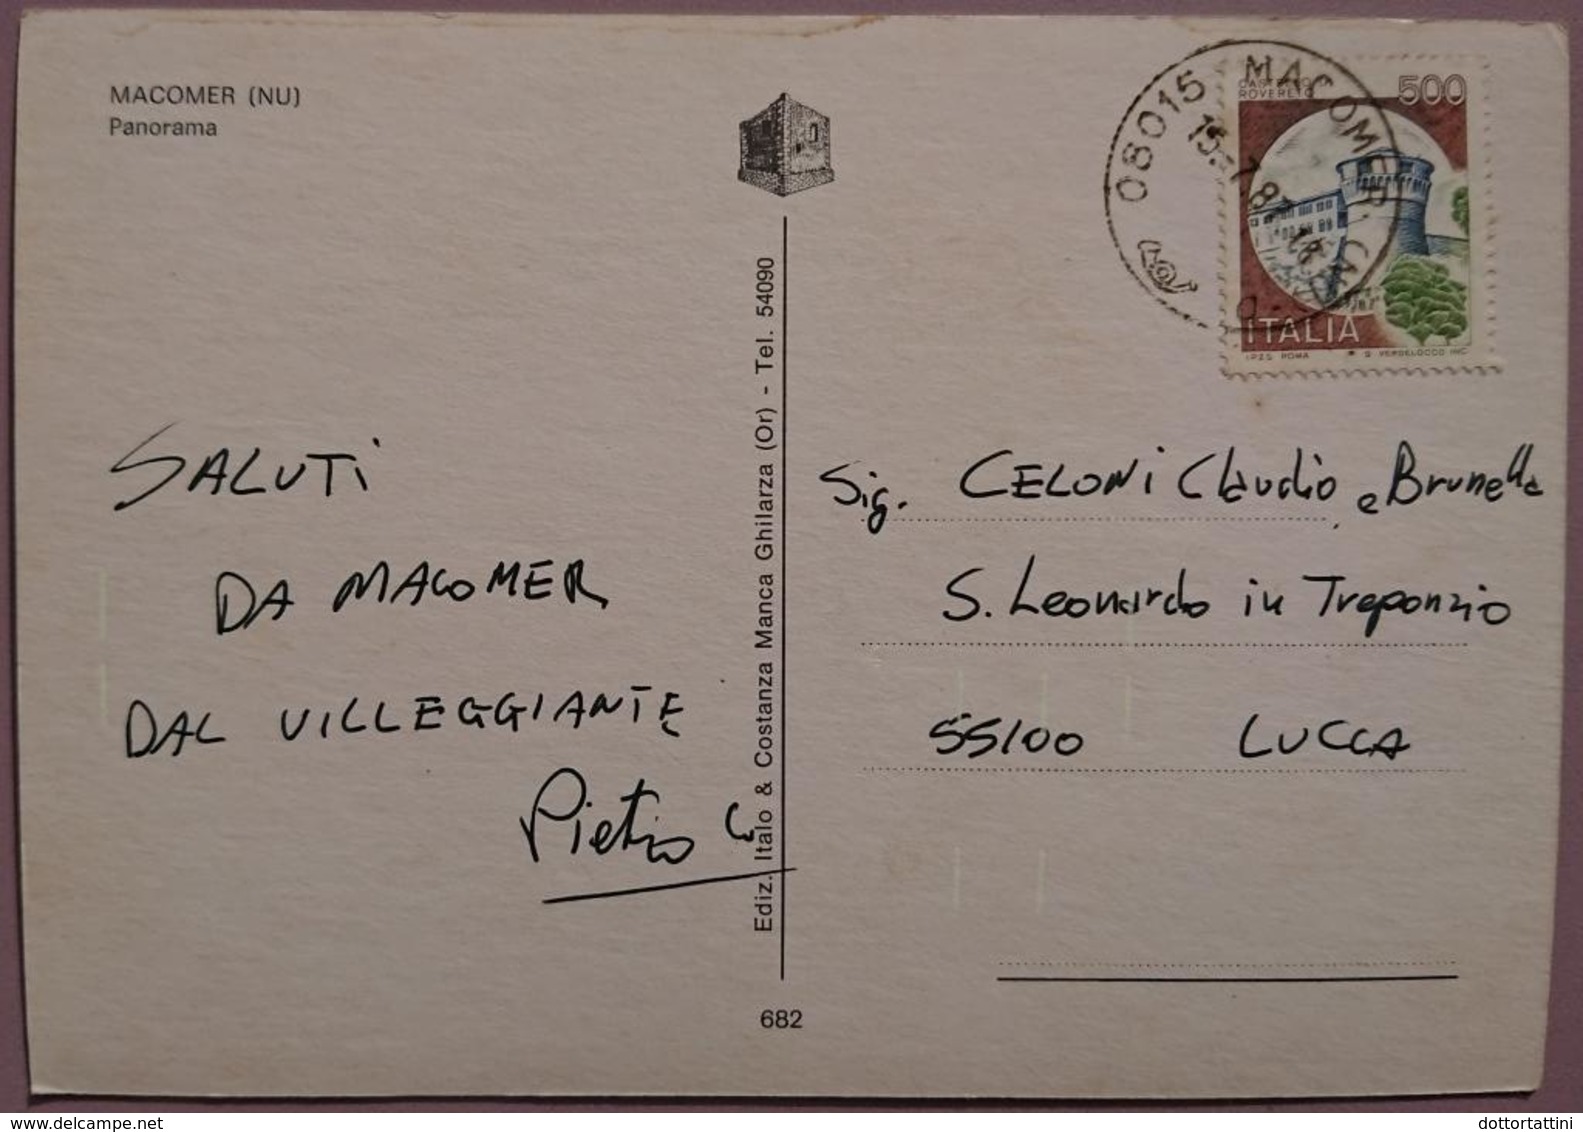 MACOMER (NU)
Panorama
SALUTI
DA MACOMER
DAL VILLEGGIANTE
Pietro
Ediz. Italo & Costanza Manca Ghilarza (Or) - Tel. 54090
682
08015 MACOMER
15-7.87
CASTELLO DI
ROVERETO
500
ITALIA
I.P.Z.S. ROMA
G. VERDELOCCO INC.
Sig. CELONI Claudio e Brunella
S. Leonardo in Treponzio
55100 LUCCA
www.delcampe.net
dottortattini